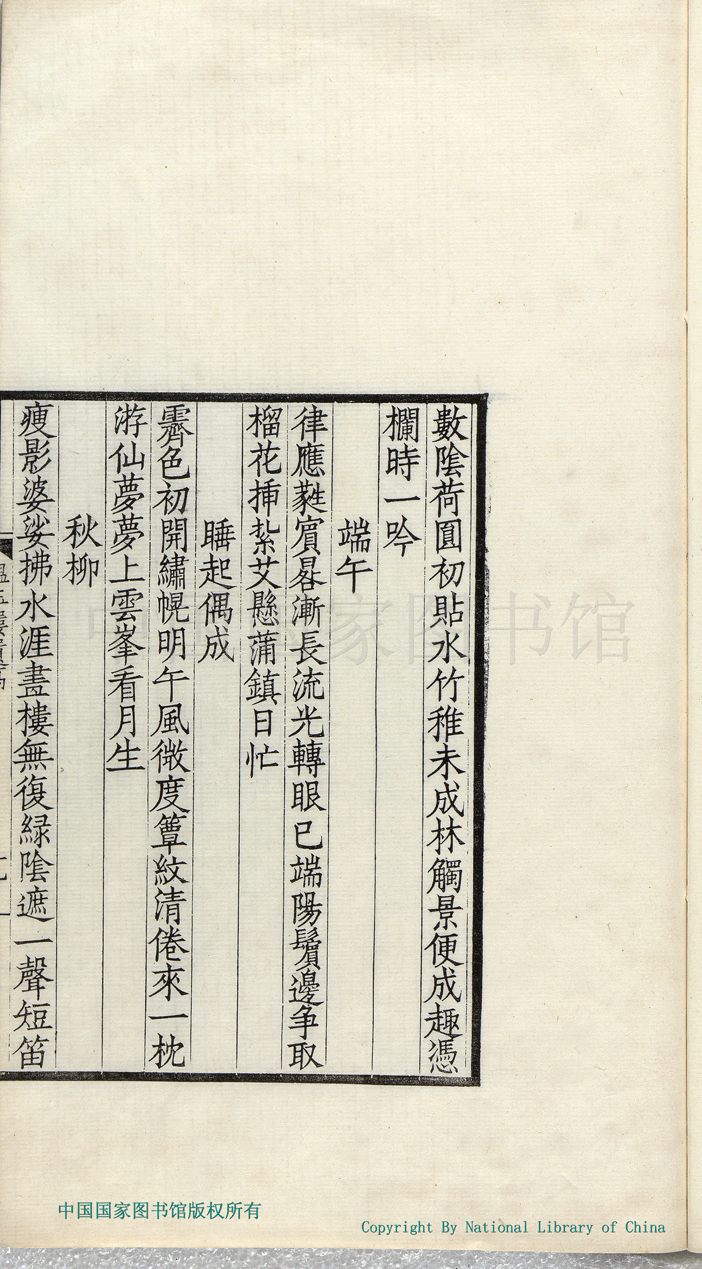 數陰荷圓初貼水竹稚未成林觸景便成趣憑
欄時一吟
端午
律應蕤賓晷漸長流光轉眼已端陽鬢邊争取
榴花揷紮艾懸蒲鎮日忙
睡起偶成
霽色初開繡幌明午風微度簟紋清倦來一枕
游仙夢夢上雲峯看月生
秋柳
瘦影婆娑拂水涯畫樓無復緑陰遮一聲短笛
中国国家图书馆
中国国家图书馆版权所有
Copyright By National Library of China